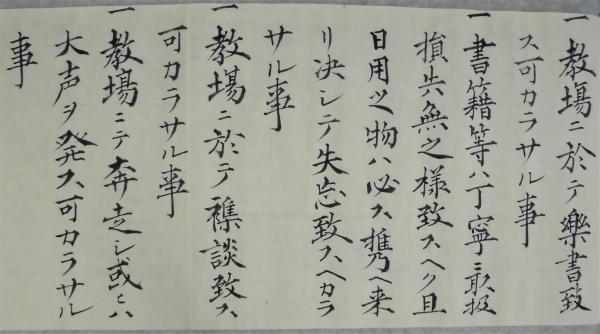 一教場ニ於テ樂書致
ス可カラサル事
一書籍等ハ丁寧ニ取扱
損失無之様致スヘク且
日用之物ハ必ス携ヘ来
リ决シテ失忘致スヘカラ
サル事
一教場ニ於テ襍談致ス
可カラサル事
一教場ニテ奔走シ或ハ
大声ヲ発ス可カラサル
事